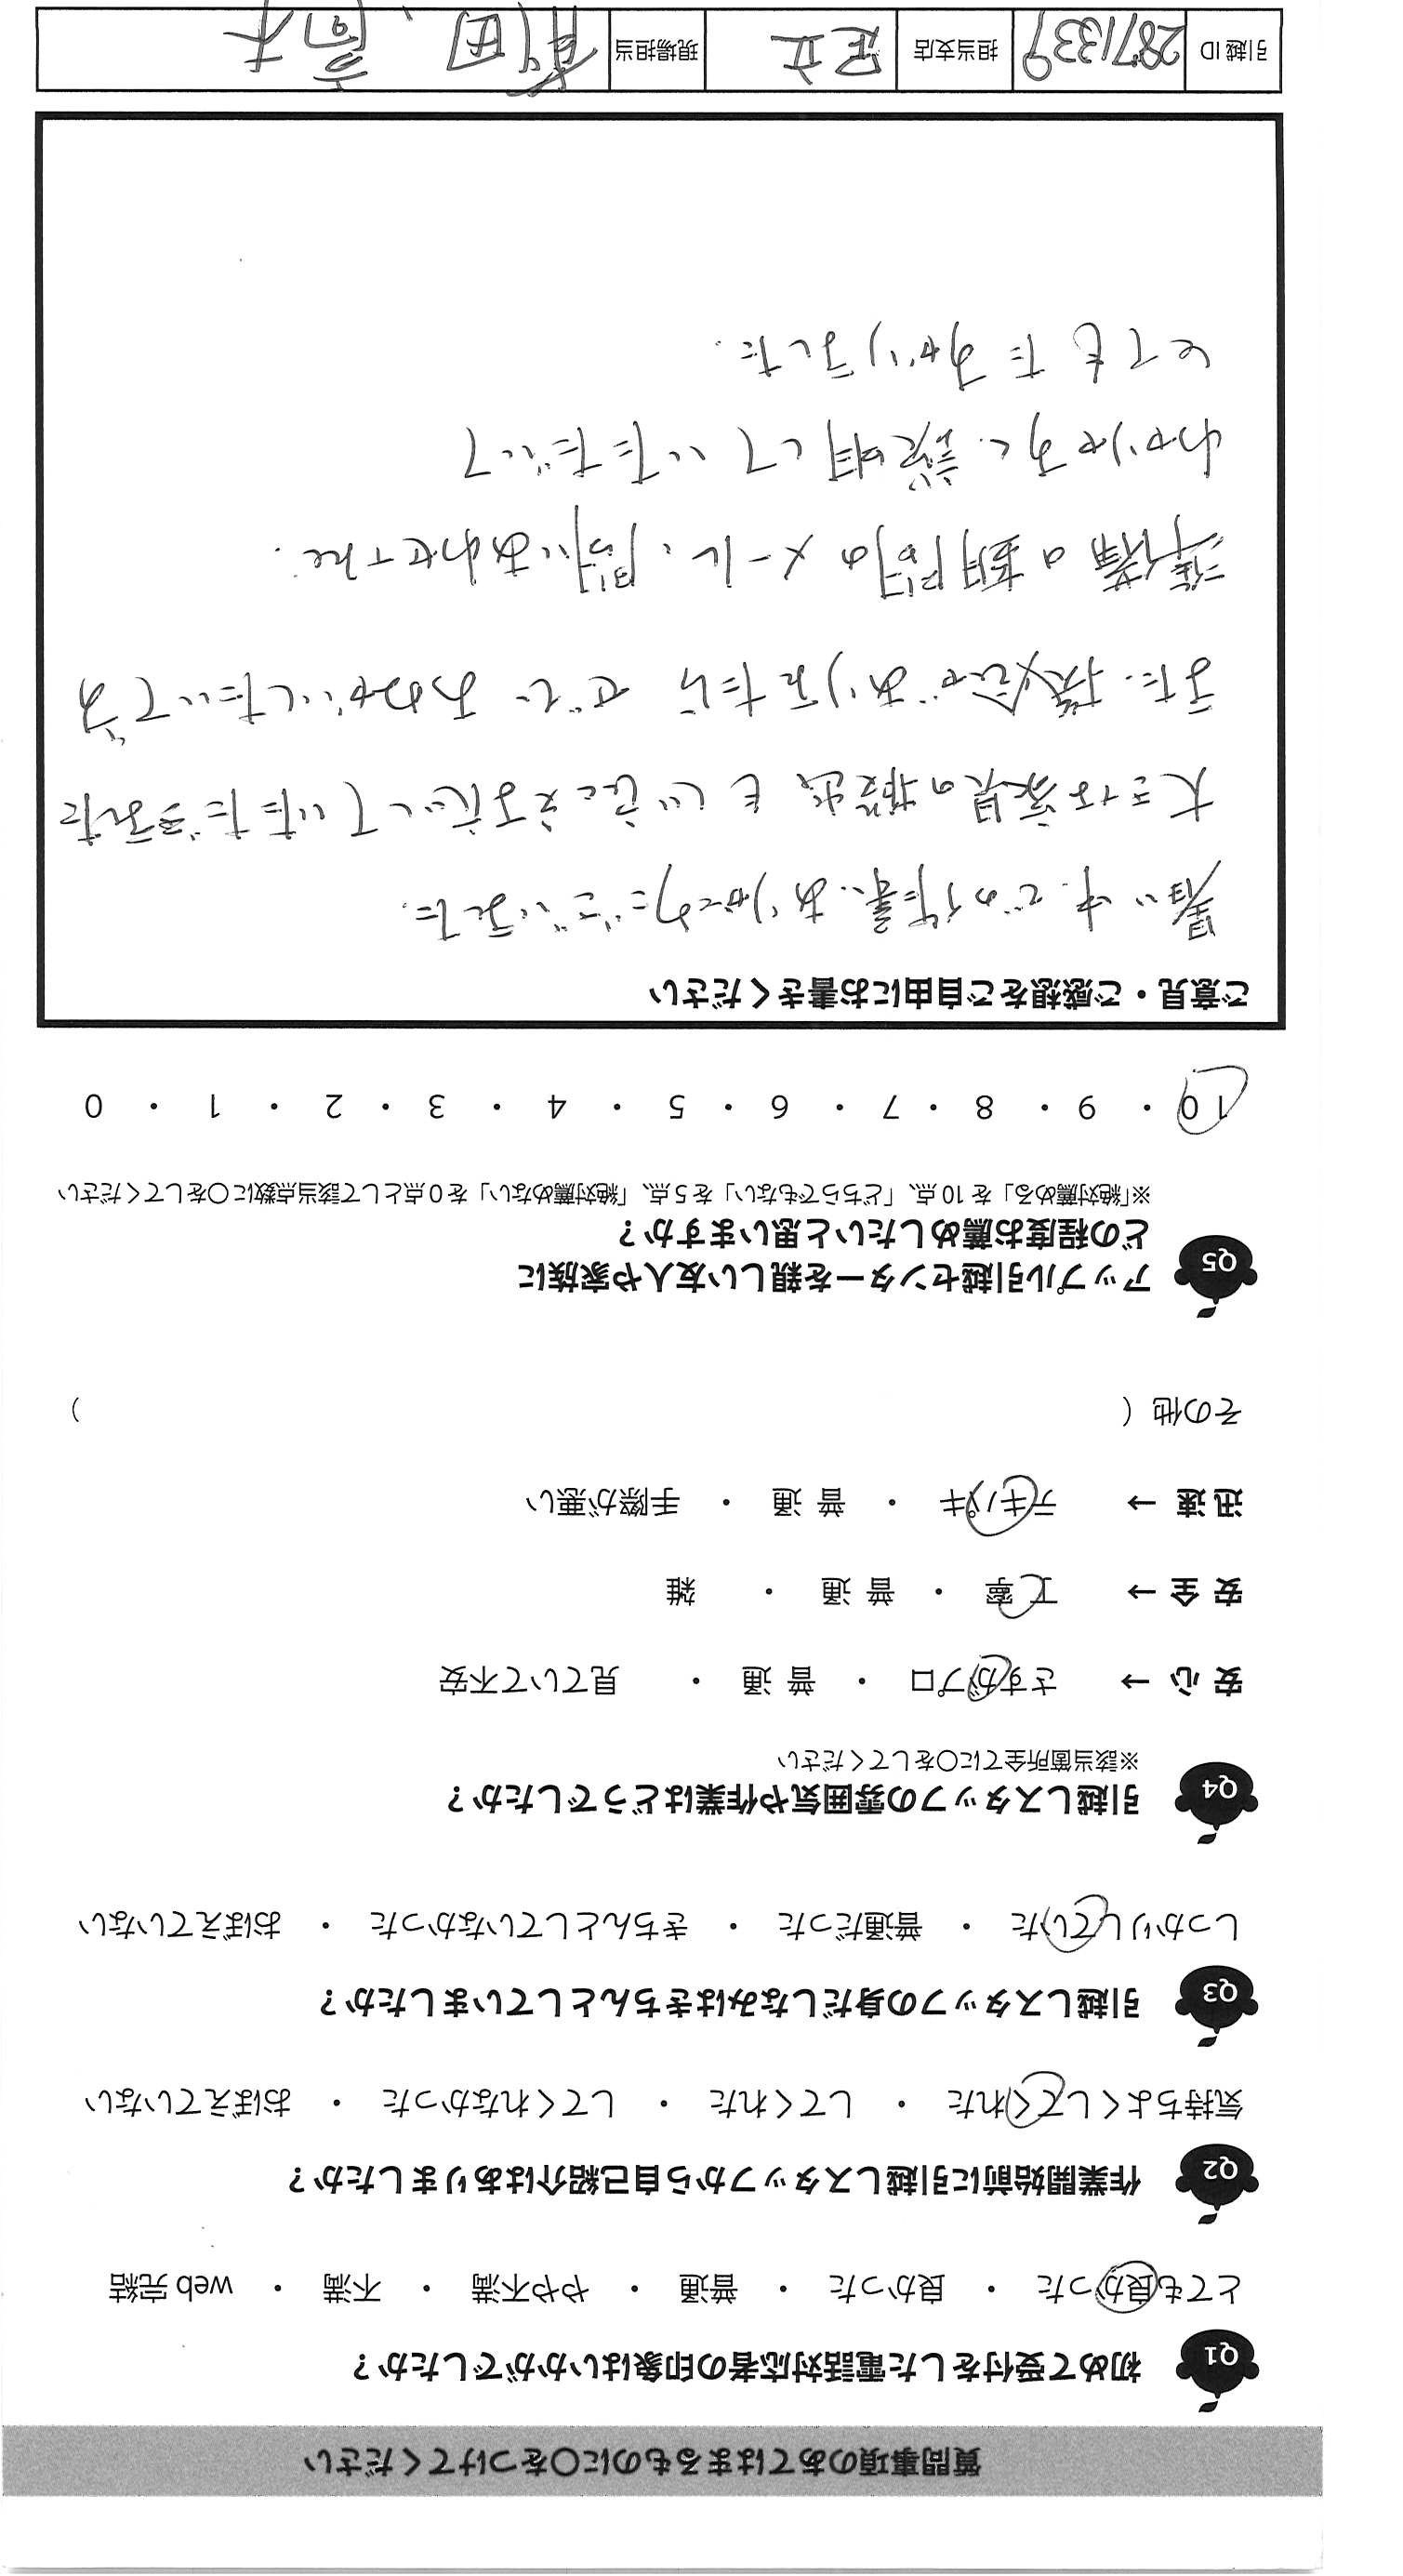 質問事項のあてはまるものに○をつけてください
Q1 初めて受付をした電話対応者の印象はいかがでしたか？
とても良かった ・ 良かった ・ 普通 ・ やや不満 ・ 不満 ・ web 完結
Q2 作業開始前に引越しスタッフから自己紹介はありましたか？
気持ちよくしてくれた ・ してくれた ・ してくれなかった ・ おぼえていない
Q3 引越しスタッフの身だしなみはきちんとしていましたか？
しっかりしていた ・ 普通だった ・ きちんとしていなかった ・ おぼえていない
Q4 引越しスタッフの雰囲気や作業はどうでしたか？
※該当箇所全てに○をしてください
安 心 → さすがプロ ・ 普 通 ・ 見ていて不安
安 全 → 丁 寧 ・ 普 通 ・ 雑
迅 速 → テキパキ ・ 普 通 ・ 手際が悪い
その他（ ）
Q5 アップル引越センターを親しい友人や家族に
どの程度お薦めしたいと思いますか？
※「絶対薦める」を 10 点、「どちらでもない」を 5 点、「絶対薦めない」を 0 点として該当点数に○をしてください
10 ・ 9 ・ 8 ・ 7 ・ 6 ・ 5 ・ 4 ・ 3 ・ 2 ・ 1 ・ 0
ご意見・ご感想をご自由にお書きください
暑い中での作業、ありがとうございました.
大きな家具の搬出も していただきました
また、機会がありましたら ぜひ おねがいしたいです
準備の期間のメール、問いあわせでも.
わかりやすく説明していただいて
とてもたすかりました.
引越 ID 2871339 担当支店 足立 現場担当 有田、高木